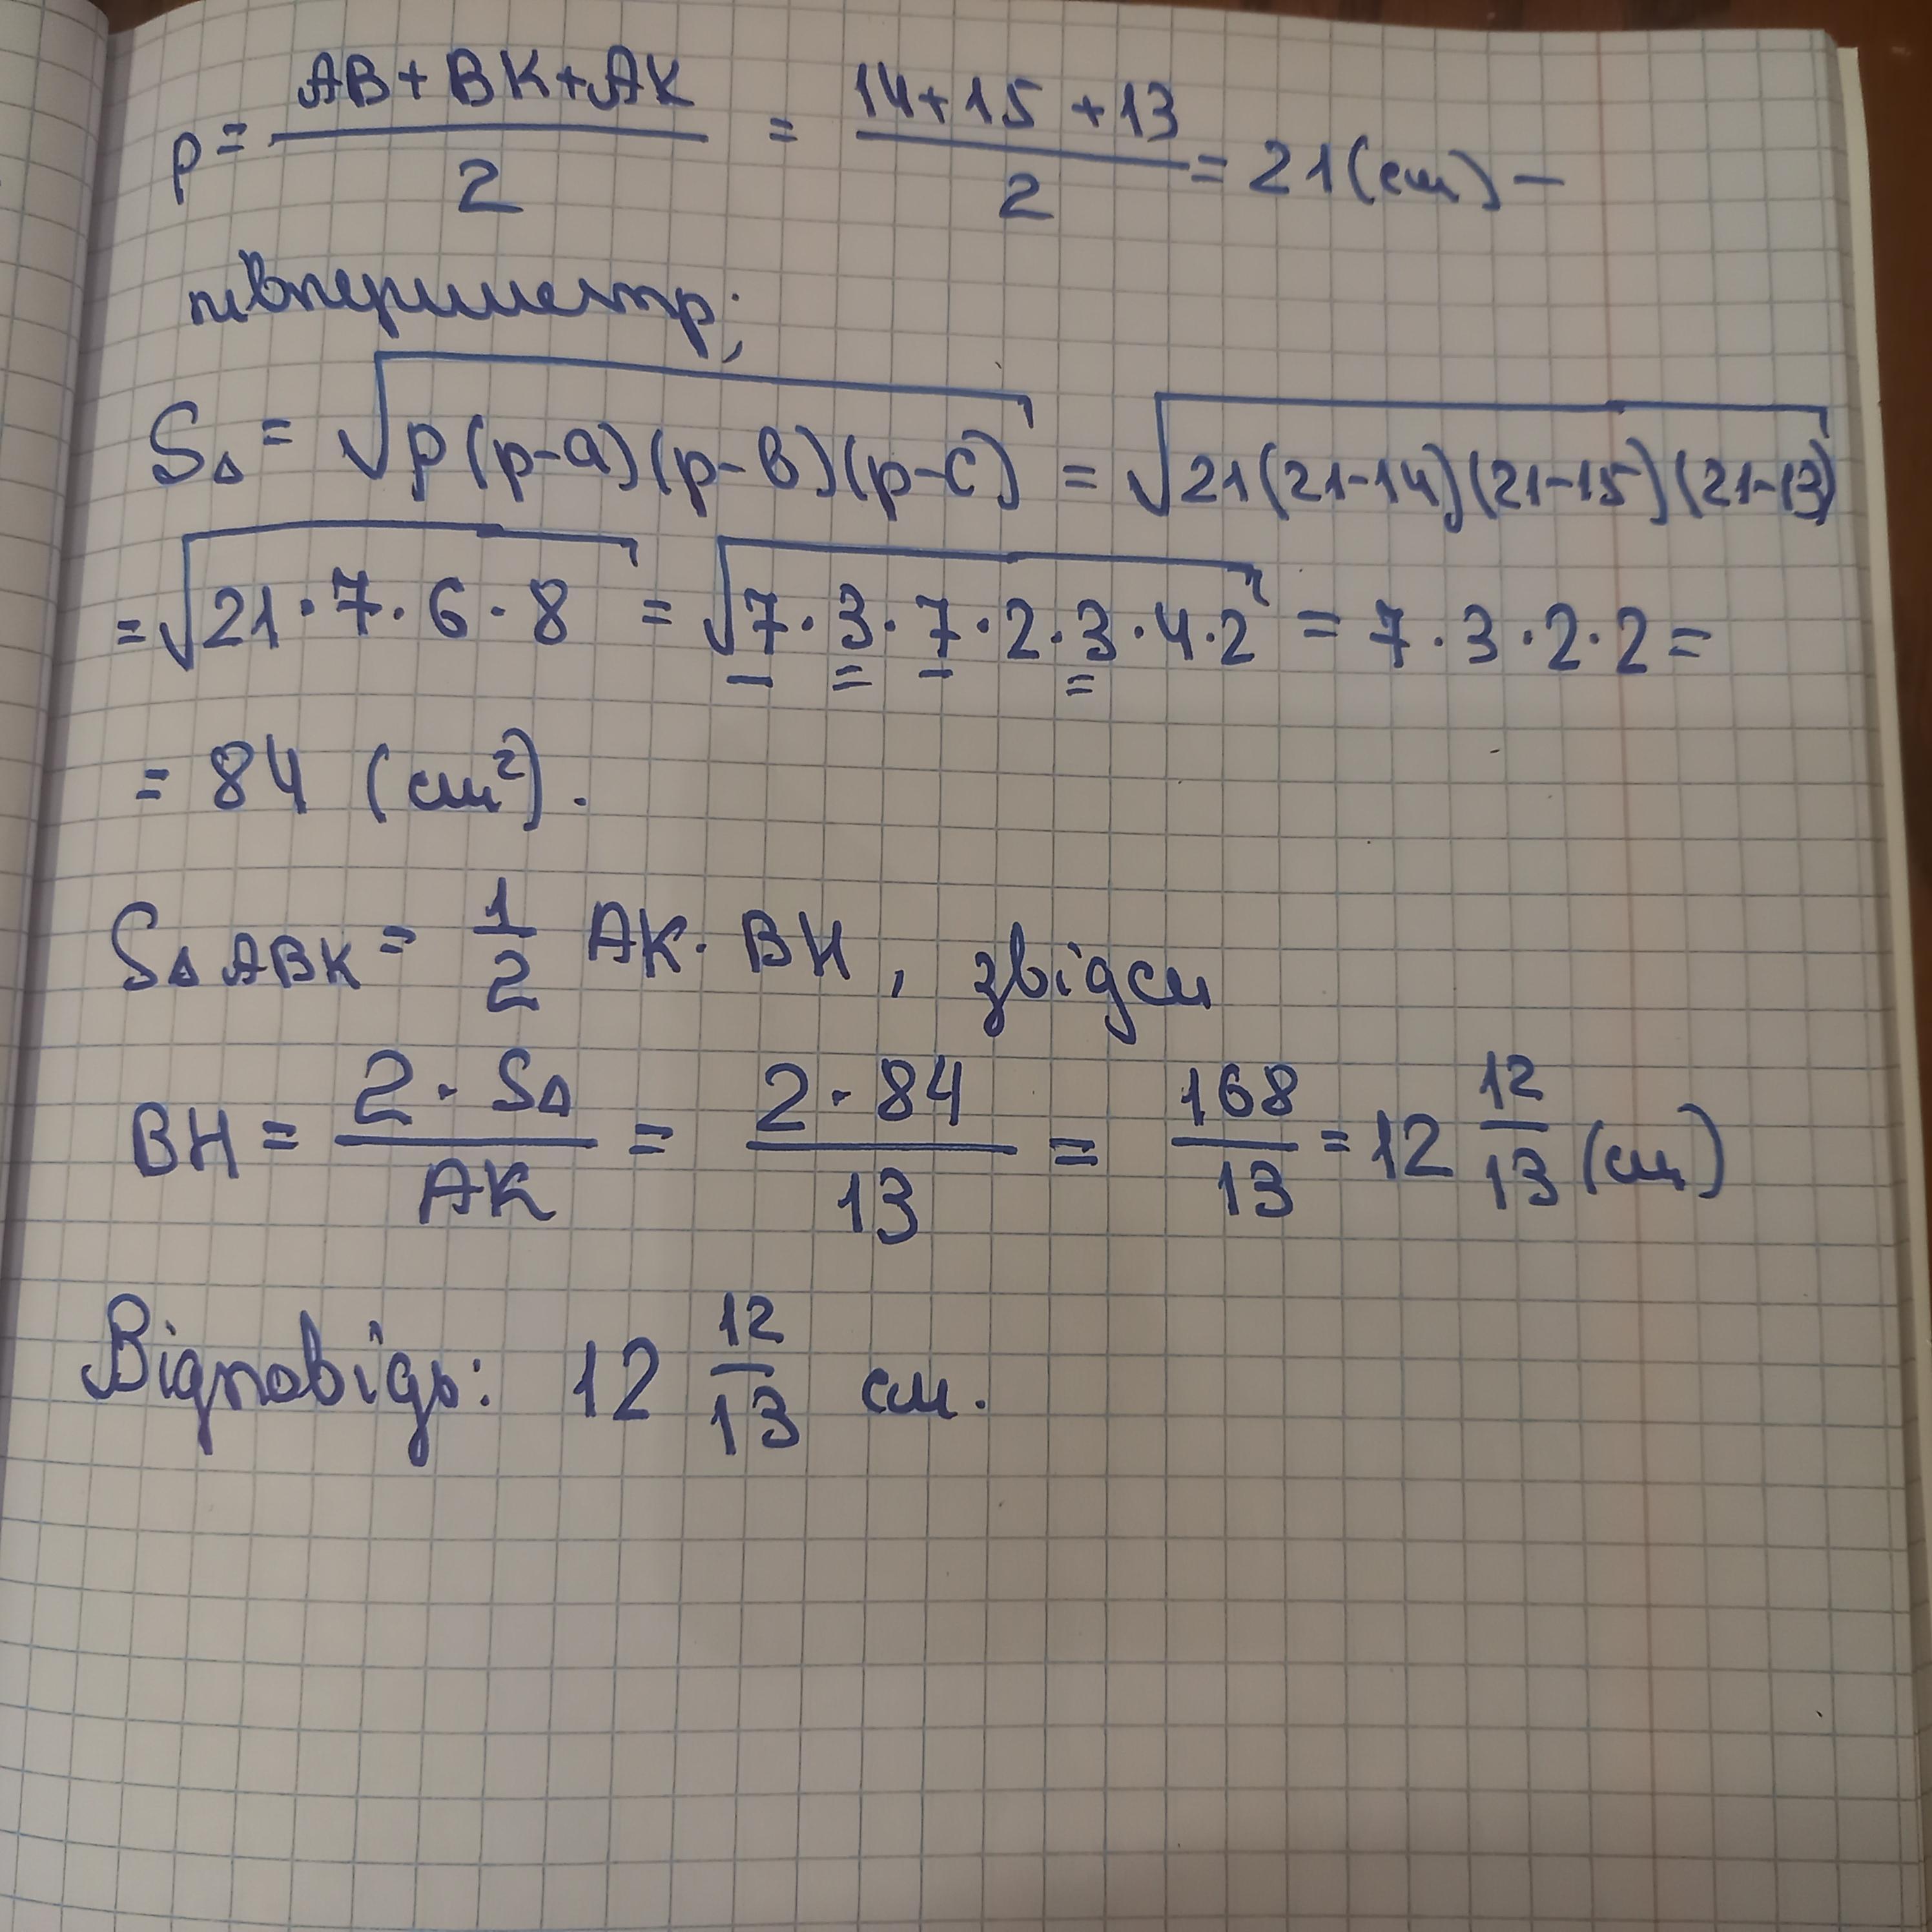 p = (AB + BK + AK)/2 = (14 + 15 + 13)/2 = 21 (см) –
півпериметр;
S△ = √(p(p-a)(p-b)(p-c)) = √(21(21-14)(21-15)(21-13))
= √(21·7·6·8) = √(7·3·7·2·3·4·2) = 7·3·2·2 =
= 84 (см²).
S△ABK = 1/2 AK · BH, звідси
BH = (2 · S△)/AK = (2 · 84)/13 = 168/13 = 12 12/13 (см)
Відповідь: 12 12/13 см.